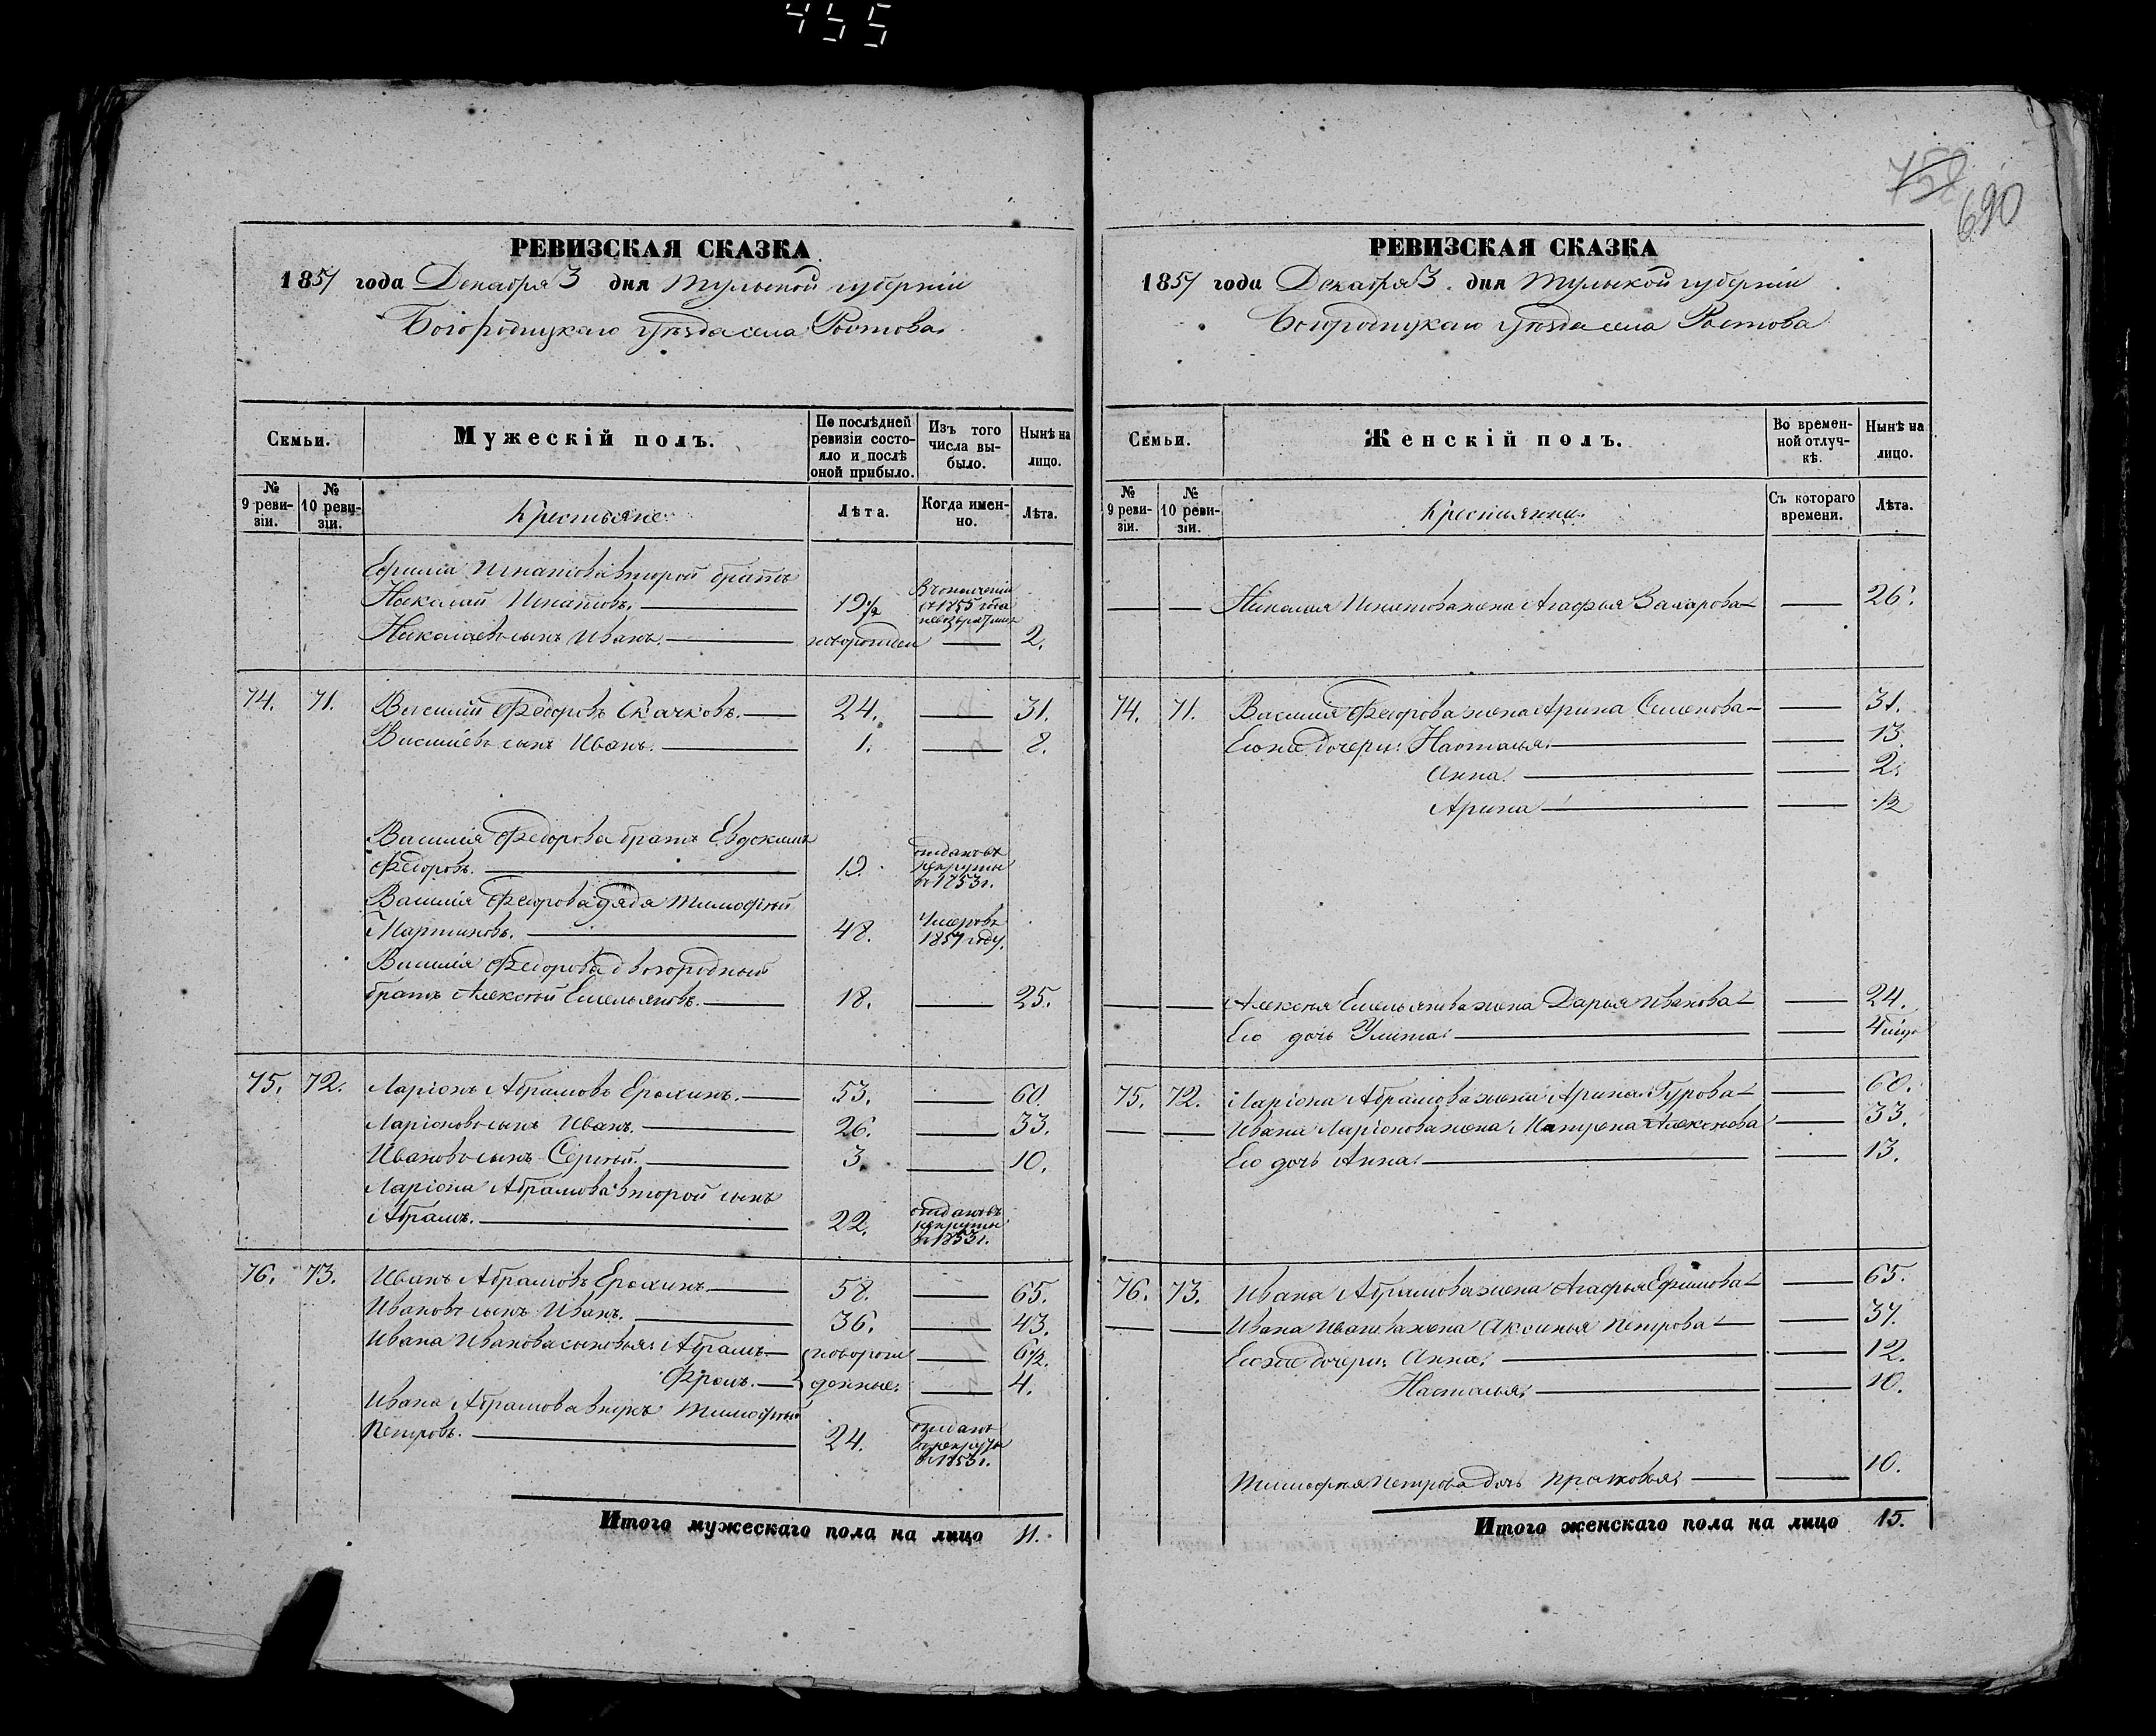 455
758
690
РЕВИЗСКАЯ СКАЗКА
1857 года Декабря 3 дня Тульской губерніи
Богородицкаго уѣзда села Ростова
Семьи.
Мужескій полъ.
По послѣдней ревизіи состояло и послѣ оной прибыло.
Изъ того числа выбыло.
Нынѣ на лицо.
№ 9 ревизіи.
№ 10 ревизіи.
Крестьяне
Лѣта.
Когда именно.
Лѣта.
Ефима Игнатова второй братъ
Николай Игнатовъ. 19½ 1855 года
Николаевъ сынъ Иванъ. новорожден 2.
74. 71. Василий Федоровъ Скачковъ. 24. 31.
Василіевъ сынъ Иванъ. 1. 8.
Василія Федорова братъ Евдокимъ
Федоровъ. 19. отданъ въ рекруты въ 1853 г.
Василія Федорова дядя Тимофѣй
Мартиновъ. 48. Умеръ въ 1857 году.
Василія Федорова двоюродный
братъ Алексѣй Емельяновъ. 18. 25.
75. 72. Ларіонъ Абрамовъ Ерохинъ. 53. 60.
Ларіоновъ сынъ Иванъ. 26. 33.
Ивановъ сынъ Сергѣй. 3. 10.
Ларіона Абрамова второй сынъ
Абрамъ. 22. отданъ въ рекруты въ 1853 г.
76. 73. Иванъ Абрамовъ Ерохинъ. 58. 65.
Ивановъ сынъ Иванъ. 36. 43.
Ивана Иванова сыновья: Абрамъ новорож 6½.
Фролъ. денные. 4.
Ивана Абрамова внукъ Тимофѣй
Петровъ. 24. отданъ въ рекруты въ 1853 г.
Итого мужескаго пола на лицо 11.
РЕВИЗСКАЯ СКАЗКА
1857 года Декабря 3. дня Тульской губерніи
Богородицкаго уѣзда села Ростова
Семьи.
Женскій полъ.
Во временной отлучкѣ.
Нынѣ на лицо.
№ 9 ревизіи.
№ 10 ревизіи.
Крестьянки.
Съ котораго времени.
Лѣта.
Николая Игнатова жена Агафья Захарова 26.
74. 71. Василія Федорова жена Арина Семенова 31.
Его же дочери: Настасья. 13.
Анна. 2.
Арина ½
Алексѣя Емельянова жена Дарья Иванова 24.
Его дочь Улита.
75. 72. Ларіона Абрамова жена Арина Гурова 60.
Ивана Ларіонова жена Матрена Алексѣева 33.
Его дочь Анна. 13.
76. 73. Ивана Абрамова жена Агафья Ефимова 65.
Ивана Иванова жена Аксинья Петрова 37.
Его же дочери: Анна. 12.
Настасья. 10.
Тимофѣя Петрова дочь Прасковья 10.
Итого женскаго пола на лицо 15.